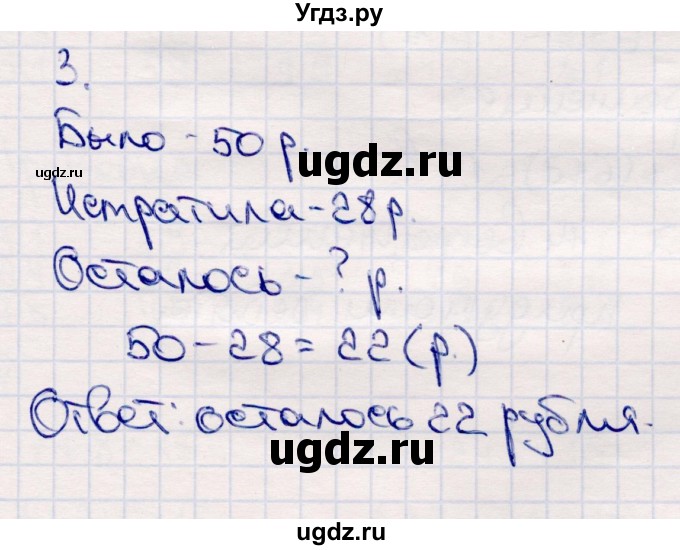 Угдз.ру
3.
Было - 50 р.
ugdz.ru
ugdz.ru
Истратила - 28 р.
Осталось - ? р.
50 - 28 = 22 (р.)
Ответ: осталось 22 рубля.
ugdz.ru
ugdz.ru